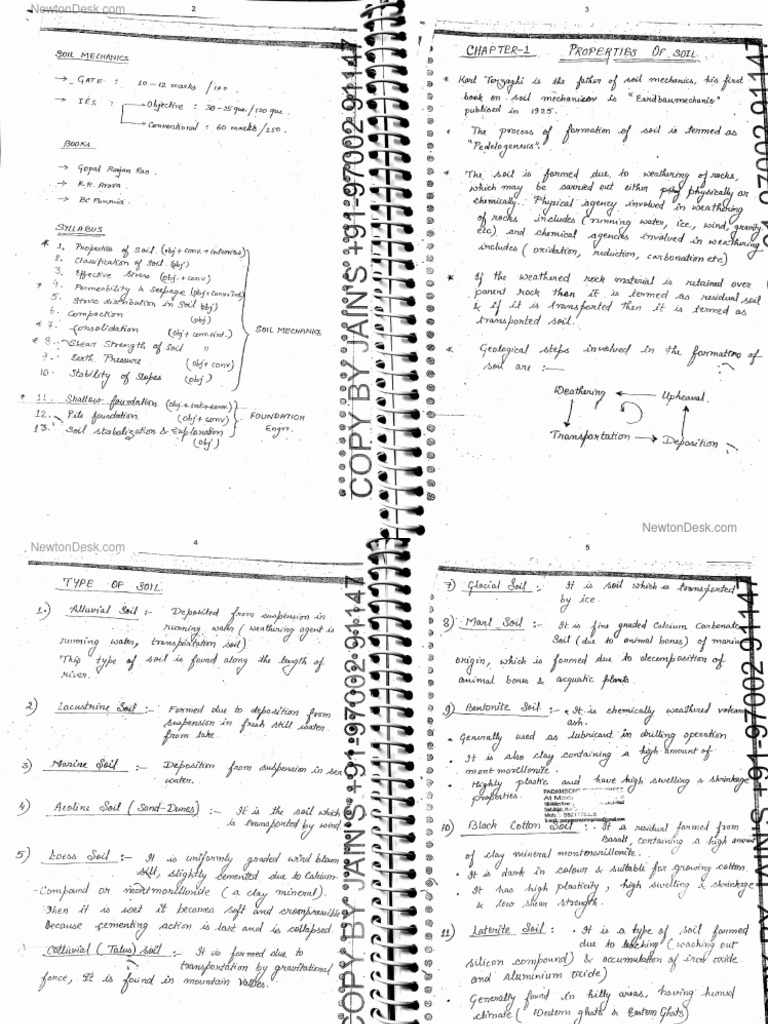 NewtonDesk.com
2
SOIL MECHANICS
→ GATE : 10-12 marks /100.
→ IES : Objective : 30-35 que/120 que.
Conventional : 60 marks/250.
BOOKS
→ Gopal Ranjan Rao.
→ K.R. Arora
→ BC Punmia.
SYLLABUS
* 1. Properties of Soil. (obj + conv + interview)
2. Classification of Soil. (obj)
3. Effective Stress (obj. + conv)
* 4. Permeability & Seepage (obj + conv + int)
5. Stress distribution in Soil (obj)
6. Compaction (obj)
* 7. Consolidation (obj + conv + int.)
* 8. Shear Strength of Soil "
9. Earth Pressure (obj + conv)
10. Stability of Slopes (obj)
SOIL MECHANICS
* 11. Shallow foundation (obj + int + conv)
12. Pile foundation (obj + conv)
13. Soil stabalization & Exploration (obj)
FOUNDATION
Engr.
COPY BY JAIN'S +91-97002-91147
3
CHAPTER-1 PROPERTIES OF SOIL
* Karl Terzaghi is the father of soil mechanics, his first
book on soil mechanics is "Eardbaumechanic"
publised in 1925.
* The process of formation of soil is termed as
"Pedologenesis".
* The soil is formed due to weathering of rocks,
which may be carried out either physically or
chemically. Physical agency involved in weathering
of rocks includes (running water, ice, wind, gravity
etc) and chemical agencies involved in weathering
includes (oxidation, reduction, carbonation etc)
* If the weathered rock material is retained over
parent rock then it is termed as residual soil
& if it is transported then it is termed as
transported soil.
* Geological steps involved in the formation of
soil are :—
Weathering ← Upheaval.
Transportation → Deposition
NewtonDesk.com
NewtonDesk.com
4
TYPE OF SOIL
1.) Alluvial Soil :- Deposited from suspension in
running water (weathering agent is
running water, transportation soil)
This type of soil is found along the length of
river.
2) Lacustrine Soil :- Formed due to deposition from
suspension in fresh still water
from lake.
3) Marine Soil :- Deposition from suspension in sea
water.
4) Aeoline Soil (Sand-Dunes) :- It is the soil which
is transported by wind
5) Loess Soil :- It is uniformly graded wind blown
silt, slightly cemented due to Calcium
Compound or montmorillonite (a clay mineral).
When it is wet it becomes soft and compressible
because cementing action is lost and is collapsed.
Colluvial (Talus) soil :- It is formed due to
transportation by gravitational
force, It is found in mountain Valleys.
COPY BY JAIN'S +91-97002-91147
5
7) Glacial Soil :- It is soil which is transported
by ice.
8) Marl Soil :- It is fine graded Calcium Carbonate
Soil (due to animal bones) of marine
origin, which is formed due to decomposition of
animal bones & acquatic plants.
9) Bentonite Soil :- • It is chemically weathered volcanic
ash.
• Generally used as lubricant in drilling operation
• It is also clay containing a high amount of
montmorillonite.
• Highly plastic and have high swelling & shrinkage
properties.
10) Black Cotton Soil : • It is residual formed from
Basalt, containing a high amount
of clay mineral montmorillonite.
• It is dark in colour & suitable for growing cotton.
• It has high plasticity, high swelling & shrinkage
& low shear strength.
11) Laterite Soil : • It is a type of soil formed
due to leaching (washing out
silicon compound) & accumulation of iron oxide
and aluminium oxide)
• Generally found in hilly areas, having humid
climate (Western ghats & Eastern Ghats)
+91-97002-91147